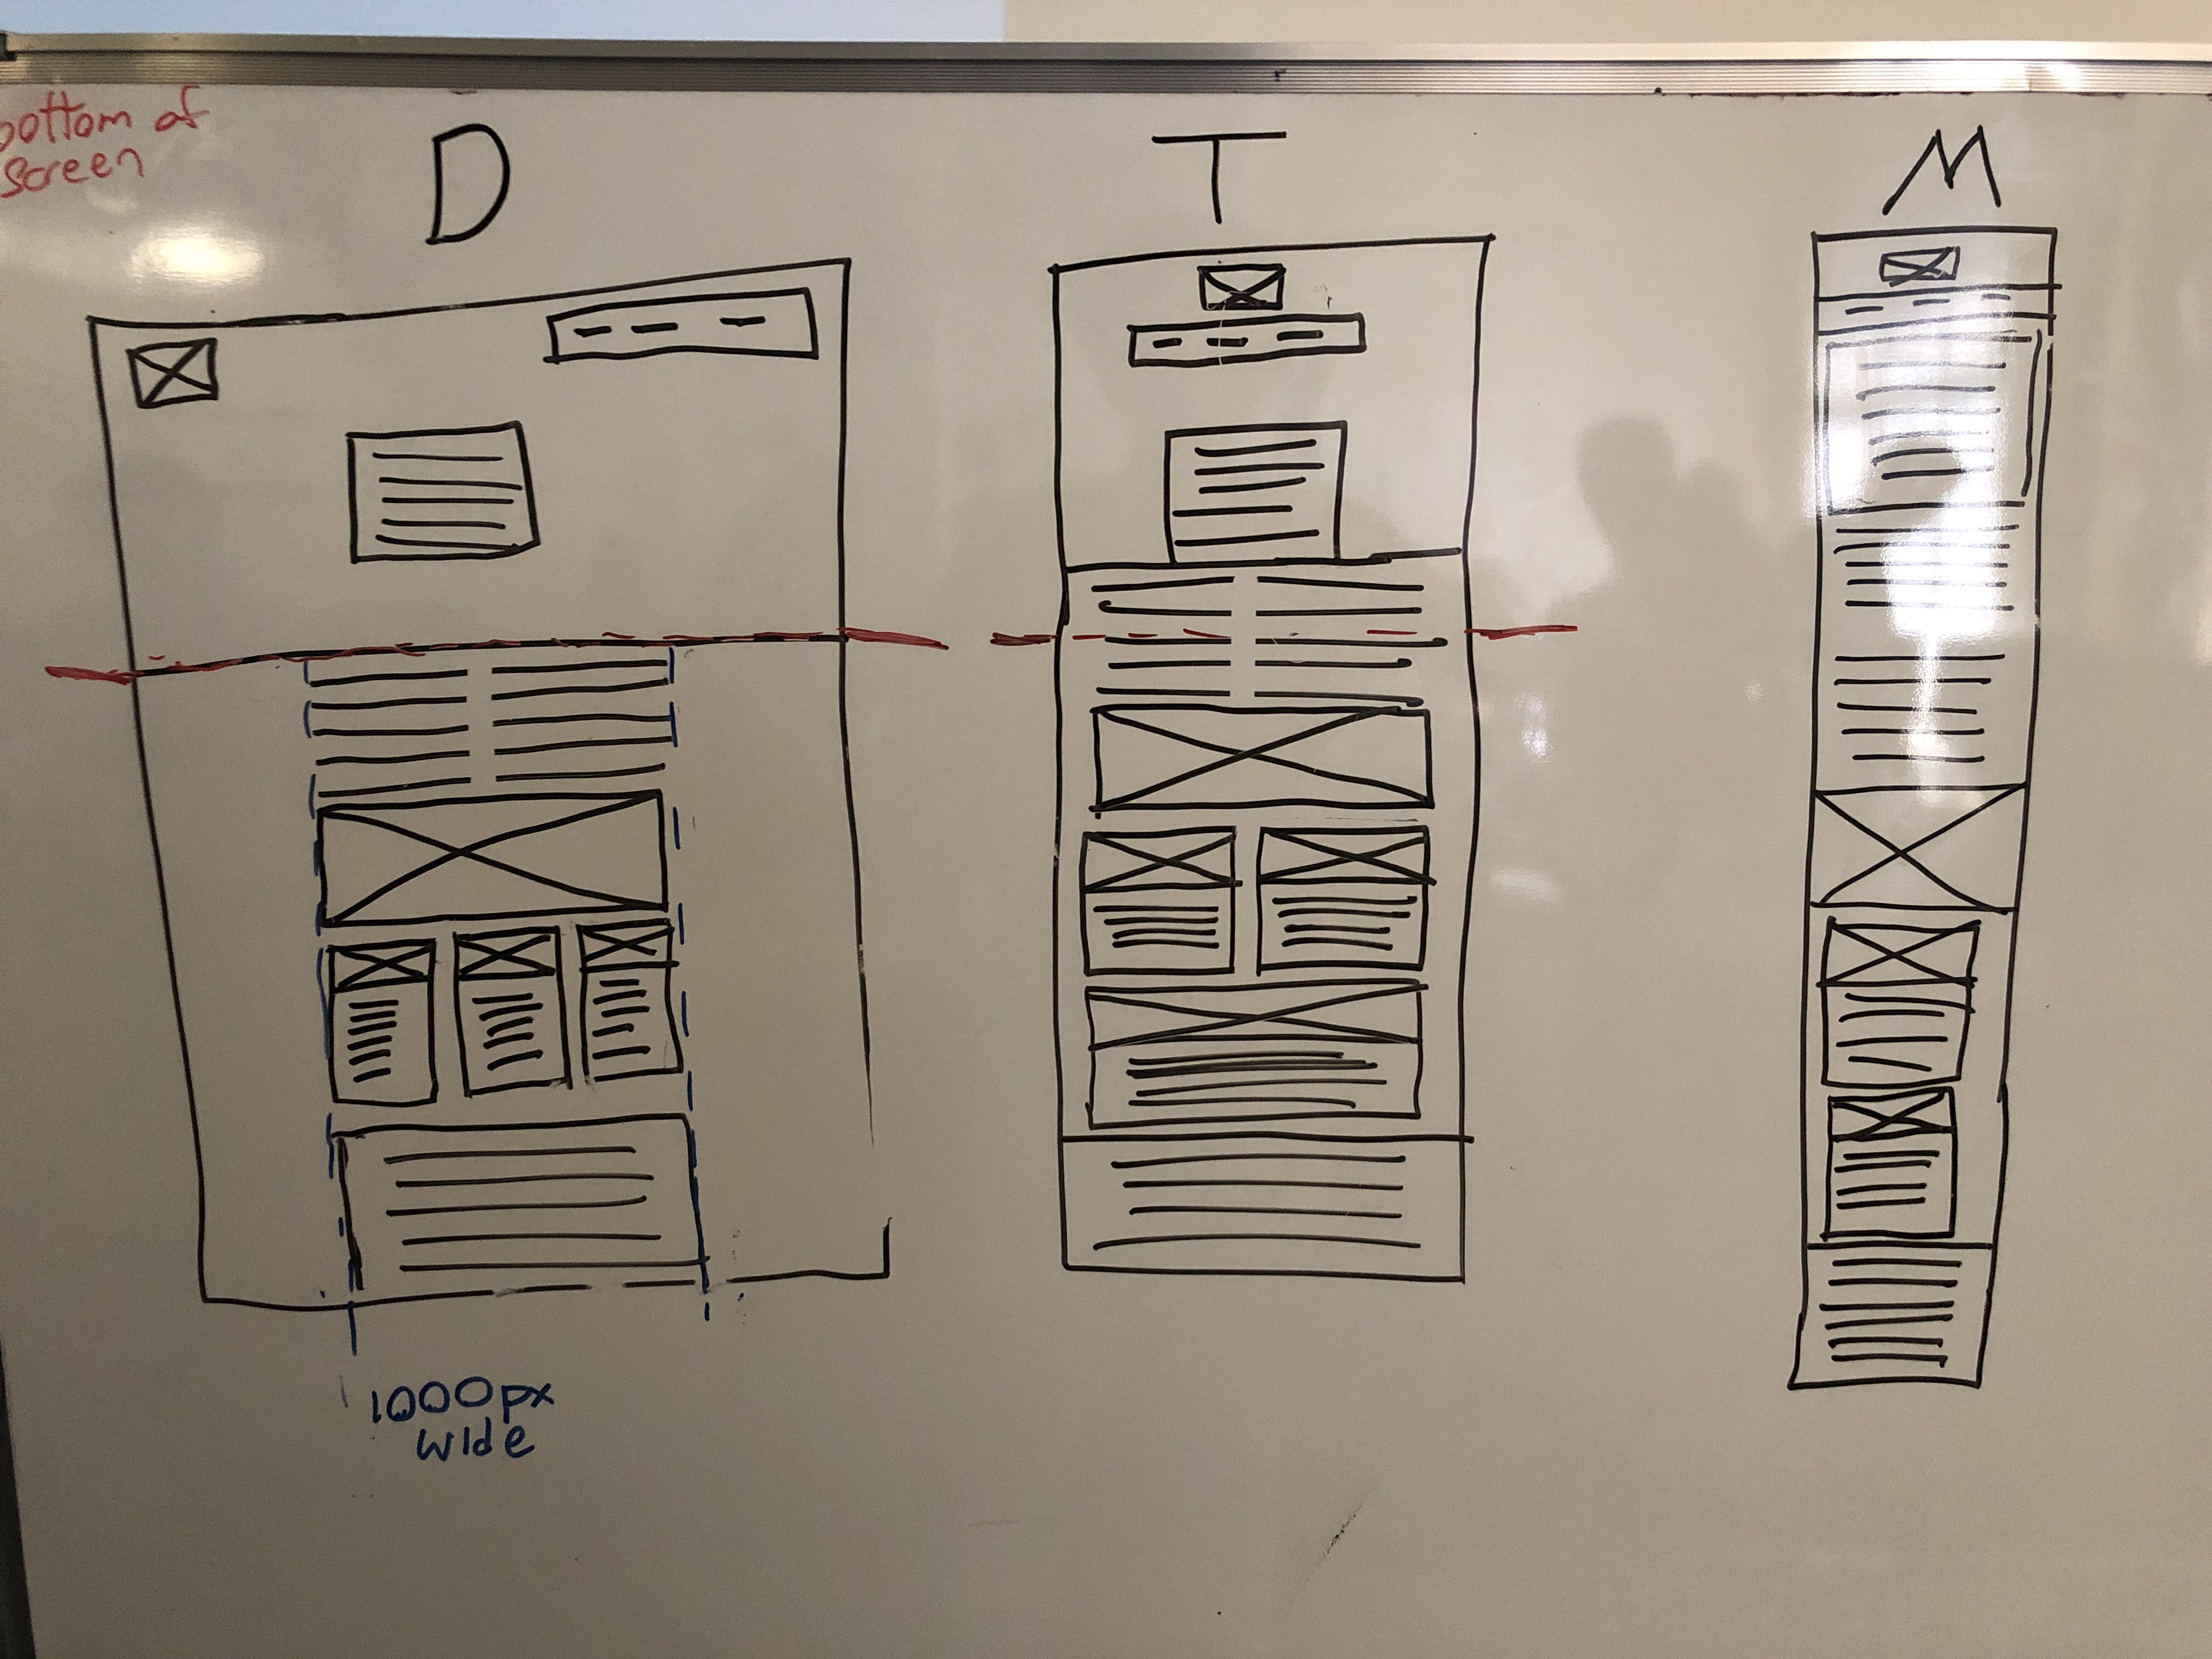 bottom of
screen
D
T
M
1000px
wide